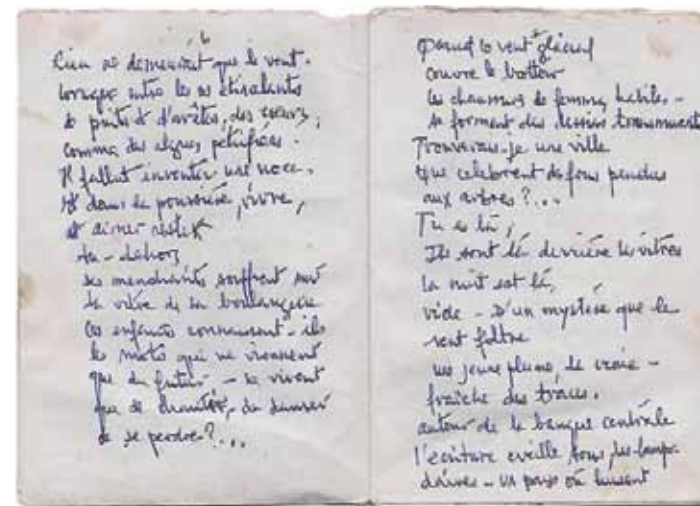 6
Rien ne demeurait que le vent.
Lorsque entre les os étincelants
de puits d'arêtes, des cœurs,
comme des algues pétrifiées.
Il fallut inventer une noce.
Et dans la poussière, vivre,
et aimer
Au-dehors
des mendiants soufflent sur
la vitre de la boulangerie
Ces enfants connaissent-ils
les mots qui ne viennent
que du futur, - ne vivent
que de chanter, de danser
de se perdre?...
Quand le vent glacial
couvre le trottoir
les chaussures de femmes habiles -
se forment des dessins
Trouverais-je une ville
que célèbrent des fous pendus
aux arbres?...
Tu es là,
Ils sont là derrière les vitres
la nuit est là,
vide - D'un mystère que le
vent filtre
une jeune plume de craie -
fraîche des traces.
autour de la banque centrale
l'écriture éveille tous les lampa-
daires - un pays où luisent